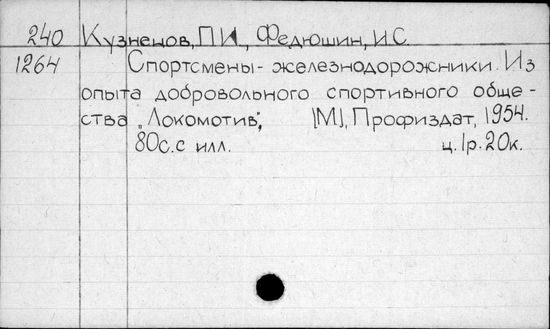 240 Кузнецов, П.И., Федюшин, И.С.
1264 Спортсмены-железнодорожники. Из
опыта добровольного спортивного обще-
ства „Локомотив", [М], Профиздат, 1954.
80с.с илл. ц. 1р. 20к.